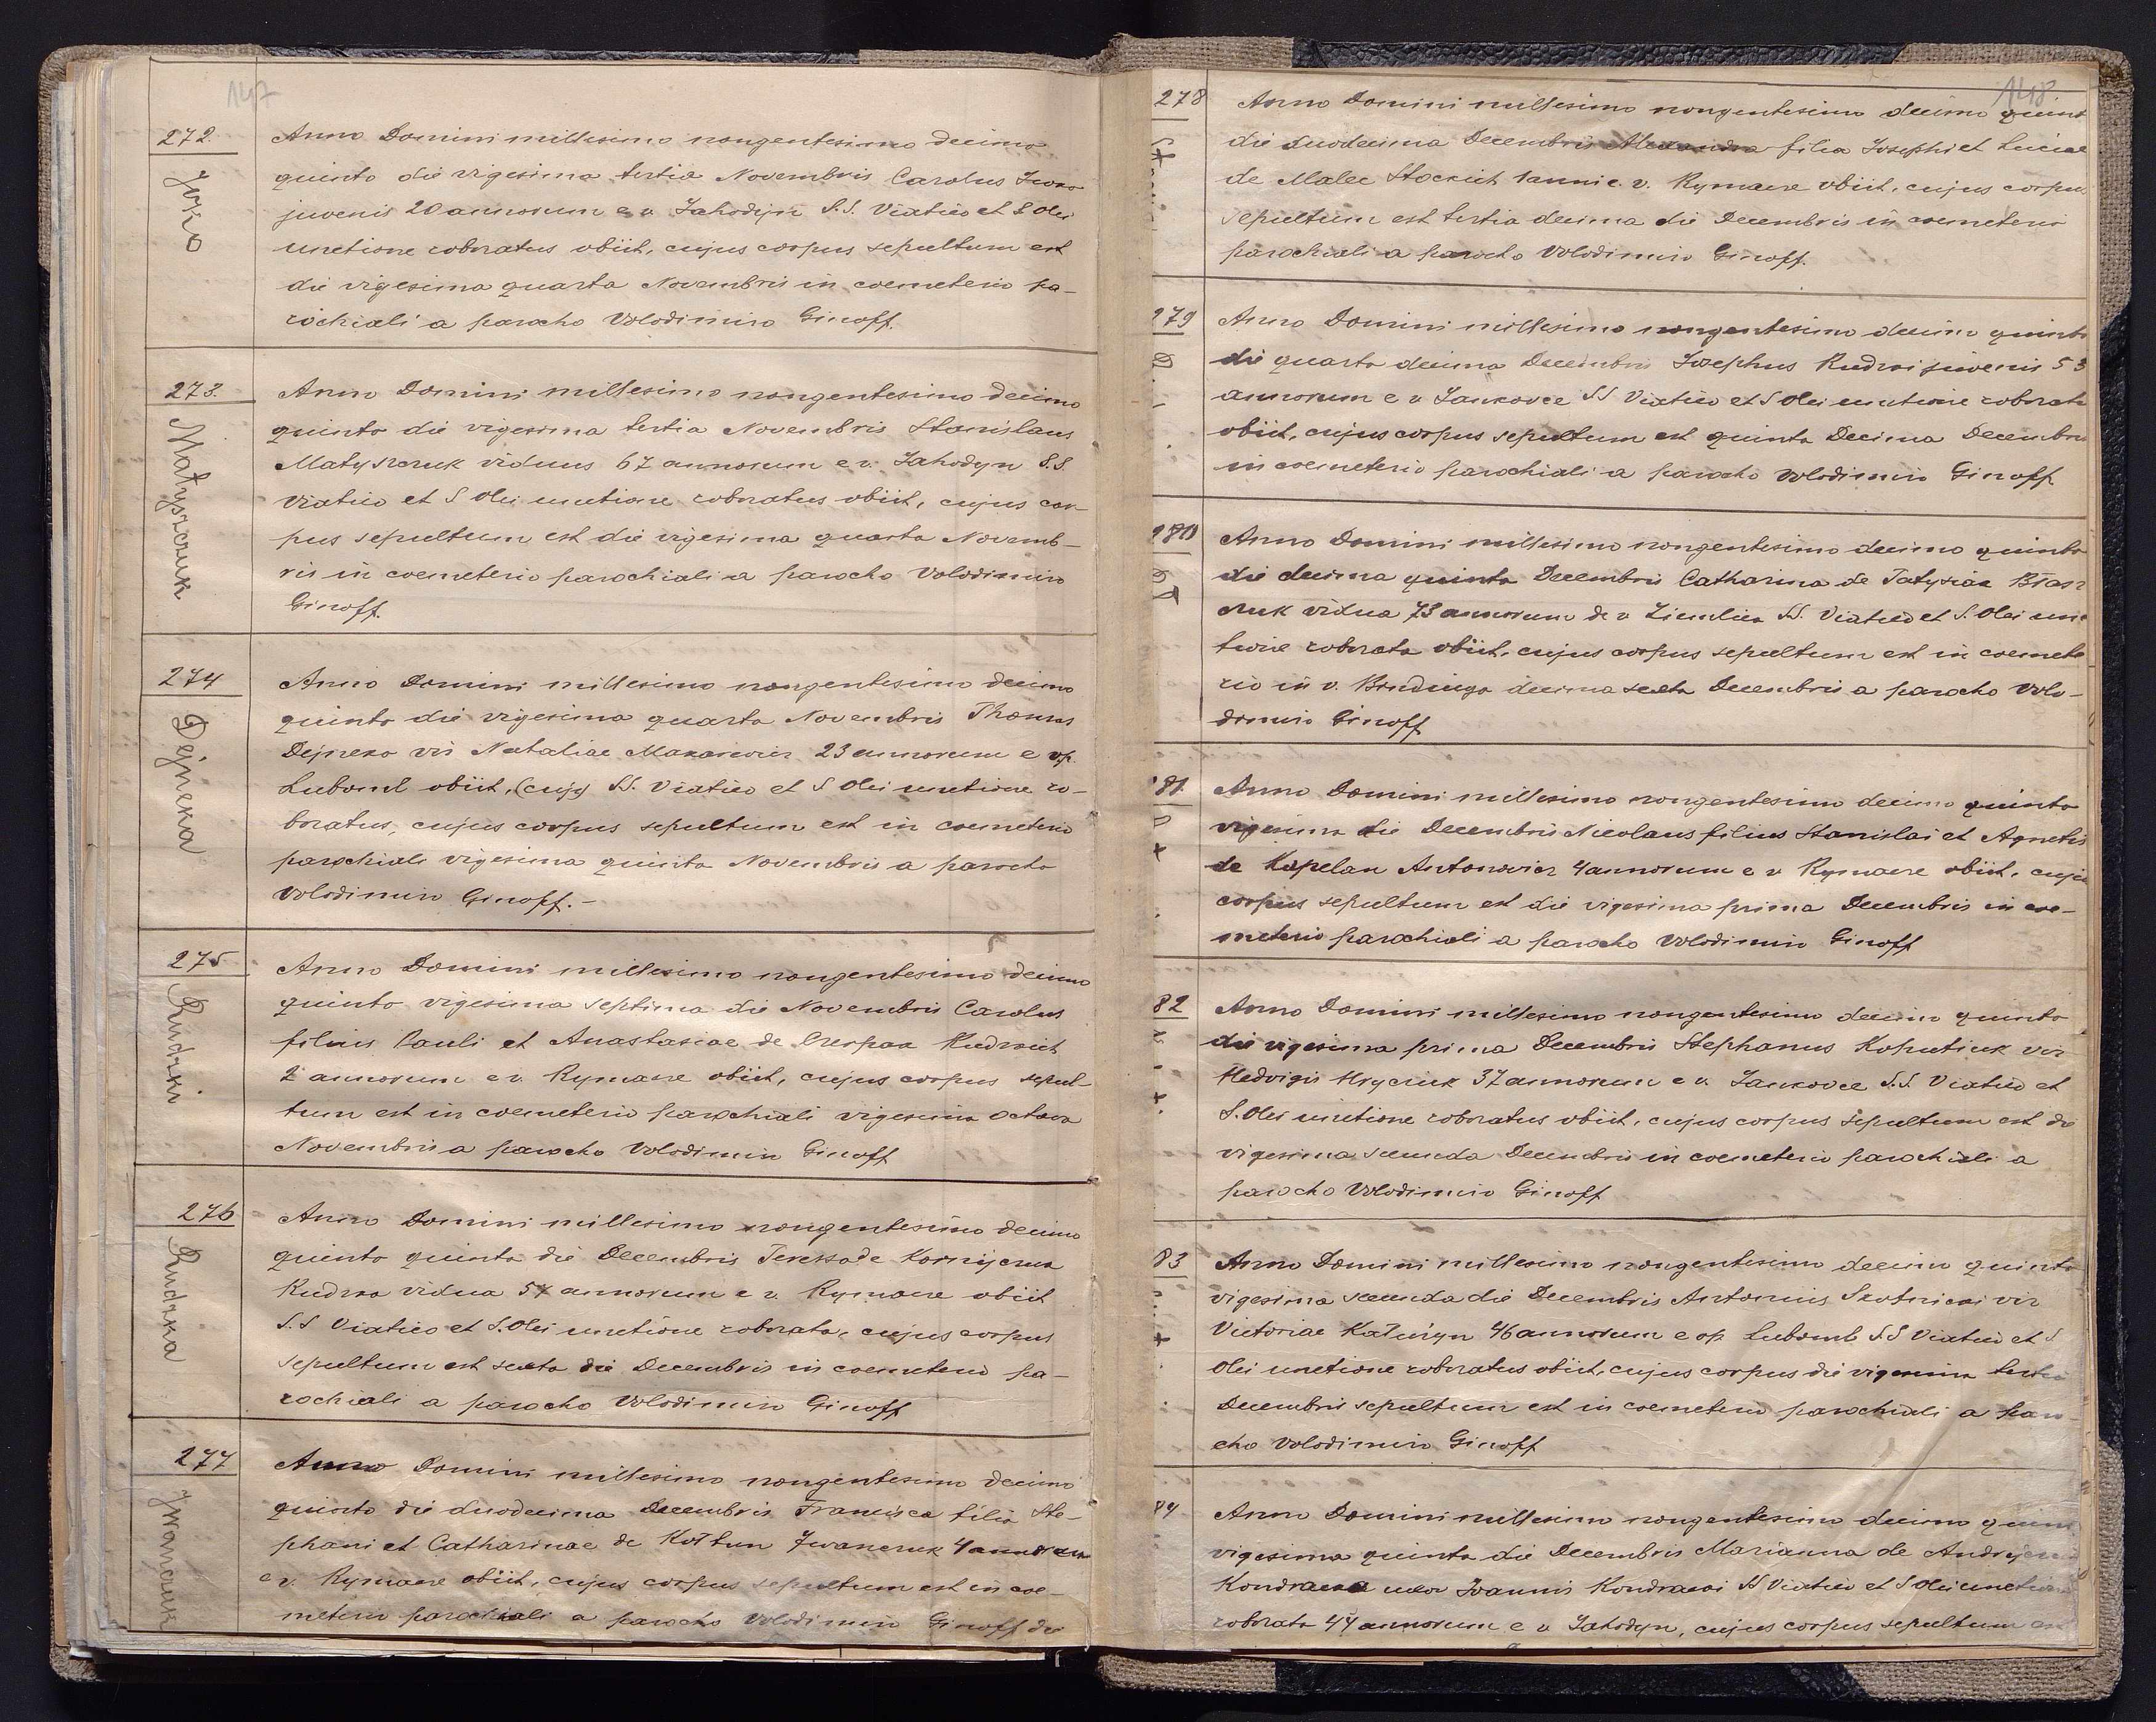 147
272.
Anno Domini millesimo nongentesimo decimo
quinto die vigesima tertia Novembris Carolus
juvenis 20 annorum e v. Jahodyn S.S. Viatico et S Olei
unctione roboratus obiit, cujus corpus sepultum est
die vigesima quarta Novembris in coemeterio pa-
rochiali a parocho Volodimiro Ginoff.
273.
Matyszczuk
Anno Domini millesimo nongentesimo decimo
quinto die vigesima tertia Novembris Stanislaus
Matyszczuk viduus 67 annorum e v. Jahodyn S.S.
Viatico et S Olei unctione roboratus obiit, cujus cor-
pus sepultum est die vigesima quarta Novemb-
ris in coemeterio parochiali a parocho Volodimiro
Ginoff.
274
Dejneka
Anno Domini millesimo nongentesimo decimo
quinto die vigesima quarta Novembris Thomas
Dejneko vir Nataliae Makarewicz 23 annorum e op.
Luboml obiit, (cujs) SS. Viatico et S Olei unctione ro-
boratus, cujus corpus sepultum est in coemeterio
parochiali vigesima quinta Novembris a parocho
Volodimiro Ginoff.-
275
Rudzki
Anno Domini millesimo nongentesimo decimo
quinto vigesima septima die Novembris Carolus
filius Pauli et Anastasiae de
2 annorum e v. Rymacze obiit, cujus corpus sepul-
tum est in coemeterio parochiali vigesima octava
Novembris a parocho Volodimiro Ginoff
276
Rudzka
Anno Domini millesimo nongentesimo decimo
quinto quinta die Decembris Teressa de Kornijczuk
Rudzka vidua annorum e v. Rymacze obiit
S.S Viatico et S.Olei unctione roborata, cujus corpus
sepultum est sexta die Decembris in coemeterio pa-
rochiali a parocho Volodimiro Ginoff
277
Iwanczuk
Anno Domini millesimo nongentesimo decimo
quinto die duodecima Decembris Francisca filia Ste-
phani et Catharinae de Kołtun Iwanczuk 4 annorum
e v. Rymacze obiit, cujus corpus sepultum est in coe-
meterio parochiali a parocho Volodimiro Ginoff die
148
278
Anno Domini millesimo nongentesimo decimo quint
die duodecima Decembris Alexandra filia Josephi et Luciae
de Malec Stockich 1 anni e. v. Rymacze obiit, cujus corpu
sepultum est tertia decima die Decembris in coemeterio
parochiali a parocho Volodimiro Ginoff.
279
Anno Domini millesimo nongentesimo decimo quinto
die quarta decima Decembris Josephus Rudzki juvenis 53
annorum e v Jankovce SS Viatico et S Olei unctione roborat
obiit, cujus corpus sepultum est quinta Decima Decembris
in coemeterio parochiali a parocho Volodimiro Ginoff
280
Anno Domini millesimo nongentesimo decimo quinto
die decima quinta Decembris Catharina de Błasz
czuk vidua 73 annorum de v SS. Viatico et S. Olei unc
tione roborata obiit, cujus corpus sepultum est in coemete
rio in v. Bindinga decima sexta Decembris a parocho Volo-
domiro Ginoff
81.
Anno Domini millesimo nongentesimo decimo quinto
vigesima die Decembris Nicolaus filius Stanislai et Agnetis
de Kapelan Antonowicz 4 annorum e v Rymacze obiit, cuju
corpus sepultum est die vigesima prima Decembris in coe-
meterio parochiali a parocho Volodimiro Ginoff
82
Anno Domini millesimo nongentesimo decimo quinto
die vigesima prima Decembris Stephanus Koputiuk vir
Hedvigis Hryciuk 37 annorum e v. Jankovce S.S. Viatico et
S.Olei unctione roboratus obiit, cujus corpus sepultum est di
vigesima secunda Decembris in coemeterio parochiali a
parocho Volodimiro Ginoff
83
Anno Domini millesimo nongentesimo decimo quinto
vigesima secunda die Decembris Antonius Skotnicki vir
Victoriae Kałużyn 46 annorum e op Luboml S.S Viatico et S
Olei unctione roboratus obiit, cujus corpus die vigesima tertia
Decembris sepultum est in coemeterio parochiali a paro-
cho Volodimiro Ginoff
84
Anno Domini millesimo nongentesimo decimo quint
vigesima quinta die Decembris Marianna de
Kondracka uxor Joannis Kondracki SS Viatico et S Olei unctione
roborata 44 annorum e v Jahodyn, cujus corpus sepultum est